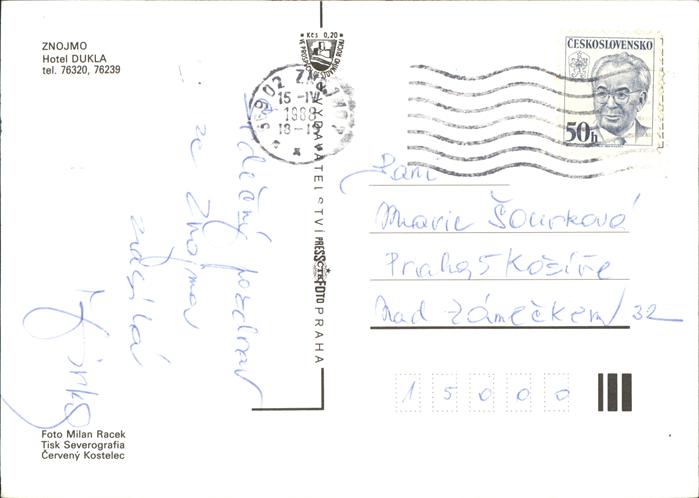 ZNOJMO
Hotel DUKLA
tel. 76320, 76239
Kčs 0,20
VE PROSPĚCH
669 02 ZNOJMO 2
15-IV
1988
18-1
ČESKOSLOVENSKO
50h
Srdečný pozdrav
ze Znojma
zasílá
Jirka
VYDAVATELSTVÍ PRESSFOTO PRAHA
ČTK
Paní
Marie Šourková
Praha 5 Košíře
Nad Zámečkem/32
15000
Foto Milan Racek
Tisk Severografia
Červený Kostelec